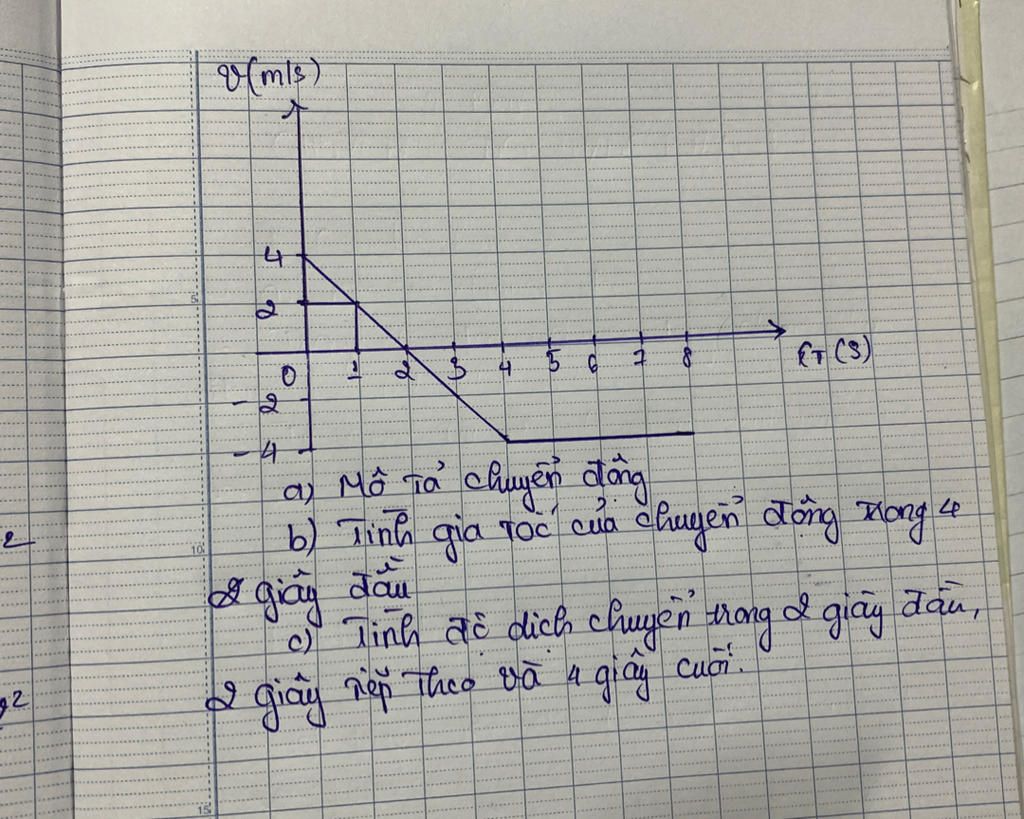 v(m/s)
4
2
0 1 2 3 4 5 6 7 8 t (s)
-2
-4
a) Mô tả chuyển động
b) Tính gia tốc của chuyển động trong 4
giây đầu
c) Tính độ dịch chuyển trong 2 giây đầu,
2 giây tiếp theo và 4 giây cuối.
2
2
5
10
15